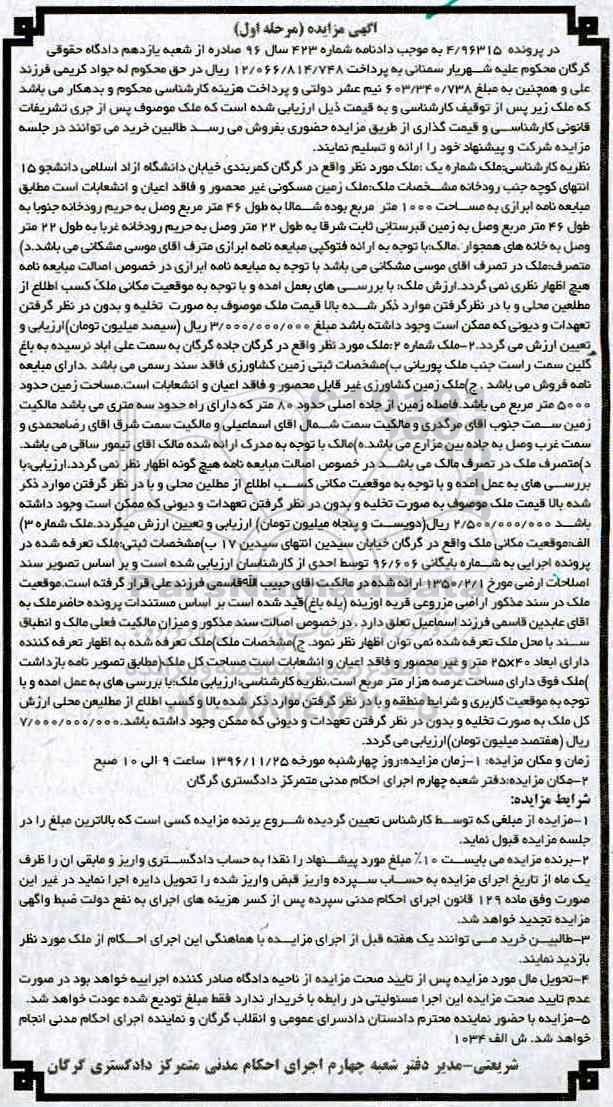 آگهی مزایده (مرحله اول)
در پرونده ۴/۹۶۳۱۵ به موجب دادنامه شماره ۴۲۳ سال ۹۶ صادره از شعبه یازدهم دادگاه حقوقی
گرگان محکوم علیه شهریار سمنانی به پرداخت ۱۲/۰۶۶/۸۱۴/۷۴۸ ریال در حق محکوم له جواد کریمی فرزند
علی و همچنین به مبلغ ۶۰۳/۳۴۰/۷۳۸ نیم عشر دولتی و پرداخت هزینه کارشناسی محکوم و بدهکار می باشد
که ملک زیر پس از توقیف کارشناسی و به قیمت ذیل ارزیابی شده است که ملک موصوف پس از جری تشریفات
قانونی کارشناسی و قیمت گذاری از طریق مزایده حضوری بفروش می رسد طالبین خرید می توانند در جلسه
مزایده شرکت و پیشنهاد خود را ارائه و تسلیم نمایند.
نظریه کارشناسی:ملک شماره یک :ملک مورد نظر واقع در گرگان کمربندی خیابان دانشگاه ازاد اسلامی دانشجو ۱۵
انتهای کوچه جنب رودخانه مشخصات ملک:ملک زمین مسکونی غیر محصور و فاقد اعیان و انشعابات است مطابق
مبایعه نامه ابرازی به مساحت ۱۰۰۰ متر مربع بوده شمالا به طول ۴۶ متر مربع وصل به حریم رودخانه جنوبا به
طول ۴۶ متر مربع وصل به زمین قبرستانی ثابت شرقا به طول ۲۲ متر وصل به حریم رودخانه غربا به طول ۲۲ متر
وصل به خانه های همجوار .مالک:با توجه به ارائه فتوکپی مبایعه نامه ابرازی مترف اقای موسی مشکانی می باشد.د)
متصرف:ملک در تصرف اقای موسی مشکانی می باشد با توجه به مبایعه نامه ابرازی در خصوص اصالت مبایعه نامه
هیچ اظهار نظری نمی گردد.ارزش ملک: با بررسی های بعمل امده و با توجه به موقعیت مکانی ملک کسب اطلاع از
مطلعین محلی و با در نظرگرفتن موارد ذکر شده بالا قیمت ملک موصوف به صورت تخلیه و بدون در نظر گرفتن
تعهدات و دیونی که ممکن است وجود داشته باشد مبلغ ۳/۰۰۰/۰۰۰/۰۰۰ ریال (سیصد میلیون تومان)ارزیابی و
تعیین ارزش می گردد.۲-ملک شماره ۲:ملک مورد نظر واقع در گرگان جاده گرگان به سمت علی اباد نرسیده به باغ
گلین سمت راست جنب ملک پوریانی ب)مشخصات ثبتی زمین کشاورزی فاقد سند رسمی می باشد .دارای مبایعه
نامه فروش می باشد . ج)ملک زمین کشاورزی غیر قابل محصور و فاقد اعیان و انشعابات است.مساحت زمین حدود
۵۰۰۰ متر مربع می باشد.فاصله زمین از جاده اصلی حدود ۸۰ متر که دارای راه حدود سه متری می باشد مالکیت
زمین سمت جنوب اقای مرگدری و مالکیت سمت شمال اقای اسماعیلی و مالکیت سمت شرق اقای رضامحمدی و
سمت غرب وصل به جاده بین مزارع می باشد.ه)مالک با توجه به مدرک ارائه شده مالک اقای تیمور ساقی می باشد.
د)متصرف ملک در تصرف مالک می باشد در خصوص اصالت مبایعه نامه هیچ گونه اظهار نظر نمی گردد.ارزیابی:با
بررسی های به عمل امده و با توجه به موقعیت مکانی کسب اطلاع از مطلین محلی و با در نظر گرفتن موارد ذکر
شده بالا قیمت ملک موصوف به صورت تخلیه و بدون در نظر گرفتن تعهدات و دیونی که ممکن است وجود داشته
باشد ۲/۵۰۰/۰۰۰/۰۰۰ ریال(دویست و پنجاه میلیون تومان) ارزیابی و تعیین ارزش میگردد.ملک شماره ۳)
الف:موقعیت مکانی ملک واقع در گرگان خیابان سیدین انتهای سیدین ۱۷ ب)مشخصات ثبتی:ملک تعرفه شده در
پرونده اجرایی به شماره بایگانی ۹۶/۶۰۶ توسط احدی از کارشناسان ارزیابی شده است و بر اساس تصویر سند
اصلاحات ارضی مورخ ۱۳۵۰/۲/۱ ارائه شده در مالکیت اقای حبیب الله قاسمی فرزند علی قرار گرفته است.موقعیت
ملک در سند مذکور اراضی مزروعی قریه اوزینه (یله باغ)قید شده است بر اساس مستندات پرونده حاضرملک به
اقای عابدین قاسمی فرزند اسماعیل تعلق دارد . در خصوص اصالت سند مذکور و میزان مالکیت فعلی مالک و انطباق
سند با محل ملک تعرفه شده نمی توان اظهار نظر نمود. ج)مشخصات ملک)ملک تعرفه شده به اظهار تعرفه کننده
دارای ابعاد ۴۰×۲۵ متر و غیر محصور و فاقد اعیان و انشعابات است مساحت کل ملک(مطابق تصویر نامه بازداشت
)ملک فوق دارای مساحت عرصه هزار متر مربع است.نظریه کارشناسی:ارزیابی ملک:با بررسی های به عمل امده و با
توجه به موقعیت کاربری و شرایط منطقه و با در نظر گرفتن موارد ذکر شده بالا و کسب اطلاع از مطلبعن محلی ارزش
کل ملک به صورت تخلیه و بدون در نظر گرفتن تعهدات و دیونی که ممکن وجود داشته باشد.۷/۰۰۰/۰۰۰/۰۰۰
ریال (هفتصد میلیون تومان)ارزیابی می گردد.
زمان و مکان مزایده: ۱-زمان مزایده:روز چهارشنبه مورخه ۱۳۹۶/۱۱/۲۵ ساعت ۹ الی ۱۰ صبح
۲-مکان مزایده:دفتر شعبه چهارم اجرای احکام مدنی متمرکز دادگستری گرگان
شرایط مزایده:
۱-مزایده از مبلغی که توسط کارشناس تعیین گردیده شروع برنده مزایده کسی است که بالاترین مبلغ را در
جلسه مزایده قبول نماید.
۲-برنده مزایده می بایست ۱۰٪ مبلغ مورد پیشنهاد را نقدا به حساب دادگستری واریز و مابقی ان را ظرف
یک ماه از تاریخ اجرای مزایده به حساب سپرده واریز قبض واریز شده را تحویل دایره اجرا نماید در غیر این
صورت وفق ماده ۱۲۹ قانون اجرای احکام مدنی سپرده پس از کسر هزینه های اجرای به نفع دولت ضبط واگهی
مزایده تجدید خواهد شد.
۳-طالبین خرید می توانند یک هفته قبل از اجرای مزایده با هماهنگی این اجرای احکام از ملک مورد نظر
بازدید نمایند.
۴-تحویل مال مورد مزایده پس از تایید صحت مزایده از ناحیه دادگاه صادر کننده اجراییه خواهد بود در صورت
عدم تایید صحت مزایده این اجرا مسئولیتی در رابطه با خریدار ندارد فقط مبلغ تودیع شده عودت خواهد شد.
۵-مزایده با حضور نماینده محترم دادستان دادسرای عمومی و انقلاب گرگان و نماینده اجرای احکام مدنی انجام
خواهد شد. ش الف ۱۰۳۴
شریعتی-مدیر دفتر شعبه چهارم اجرای احکام مدنی متمرکز دادگستری گرگان
ParsNamadData